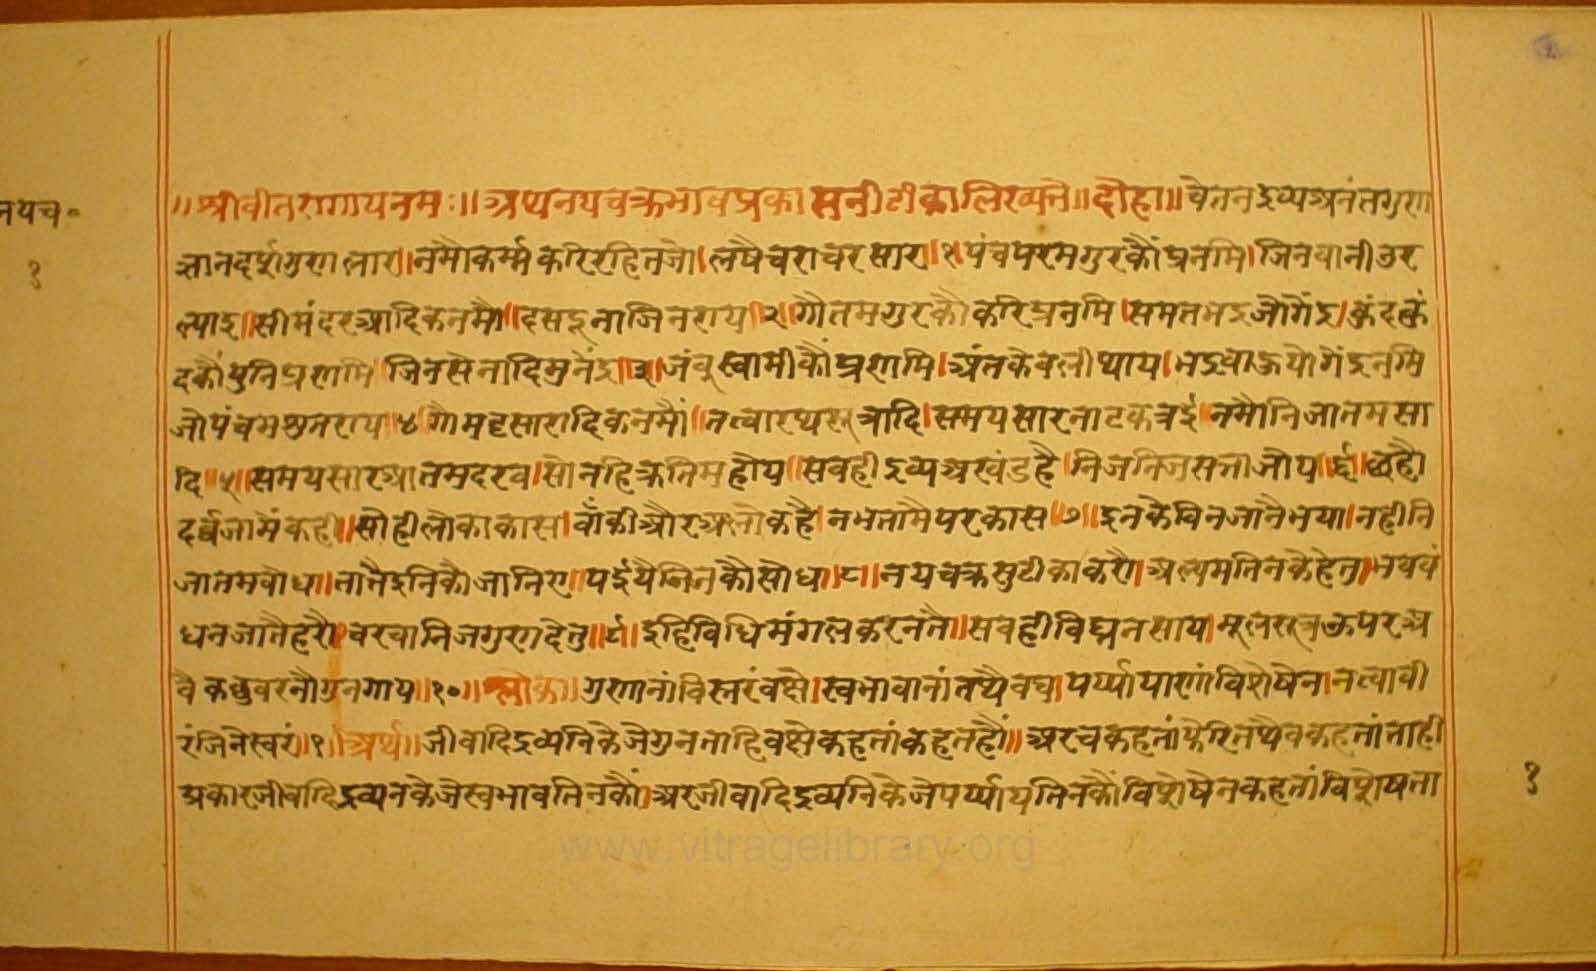 ॥श्रीवीतरागायनमः॥अथनयचक्रभावप्रकासनीटीकालिख्यते॥दोहा॥चेतनद्रव्यअनंतगुण
नयच॰
ज्ञानदर्शगुणलार॥नमौकर्म्मकरिरहितजो।लषैचराचरसार॥१।पंचपरमगुरकौंप्रनमि।जिनवानीउर
१
ल्याइ॥सीमंदरआदिकनमौ॥दसइनाजिनराय॥२॥गौतमगुरकौकरिप्रनमि।समतभद्रजोगेंद्र।कुंदकुं
दकौंधुनिप्रणमि।जिनसेनादिमुनेंद्र॥३॥जंबुस्वामीकौंप्रणमि।अंतकेवलीथाय।भद्रवाऊयोगेंद्रनमि
जोपंचमश्रुतराय॥४॥गोमट्टसारादिकनमौं॥तत्वारथसूत्रादि।समयसारनाटकत्रई॥नमौनिजातमसा
दि॥५॥समयसारआतमदरव।सोनहिक्रतिमहोय॥सवहीद्रव्यअखंडहै।निजनिजसत्ताजोय॥६॥छहौ
दर्वजामैंकही॥सोहीलोकाकास।वाँकीऔरअलोकहै।नभतामैपरकास॥७॥इनकेविनजानैभया।नहीनि
जातमवोध॥तातैइनिकौजानिए॥पईयैतिनकौसोध॥८॥नयचक्रसुटीकाकरौ।अल्पमतिनकैहेतु।भववं
धनजातैहरौ।वरवानिजगुणदेतु॥९॥इहिविधिमंगलकरनतै॥सवहीविघ्ननसाय।मूलसूत्रऊपरअ
वैकछुवरनौगुनगाय॥१०॥श्लोक॥गुणानांविस्तरंवक्षे।स्वभावानांतथैवच।पर्य्यायाणांविशेषेन।नत्वावी
रंजिनेस्वरं॥१॥अर्थ॥जीवादिद्रव्यनिकेजेगुनताहिवक्षेकहतांकहतहौं॥अरचकहतांफेरितथैवकहतांताही
प्रकारजीवादिद्रव्यनकेजेस्वभावतिनकौं।अरजीवादिद्रव्यनिकैजेपर्य्यायतिनकौंविशेषेनकहतांविशेषता
१
www.vitragelibrary.org